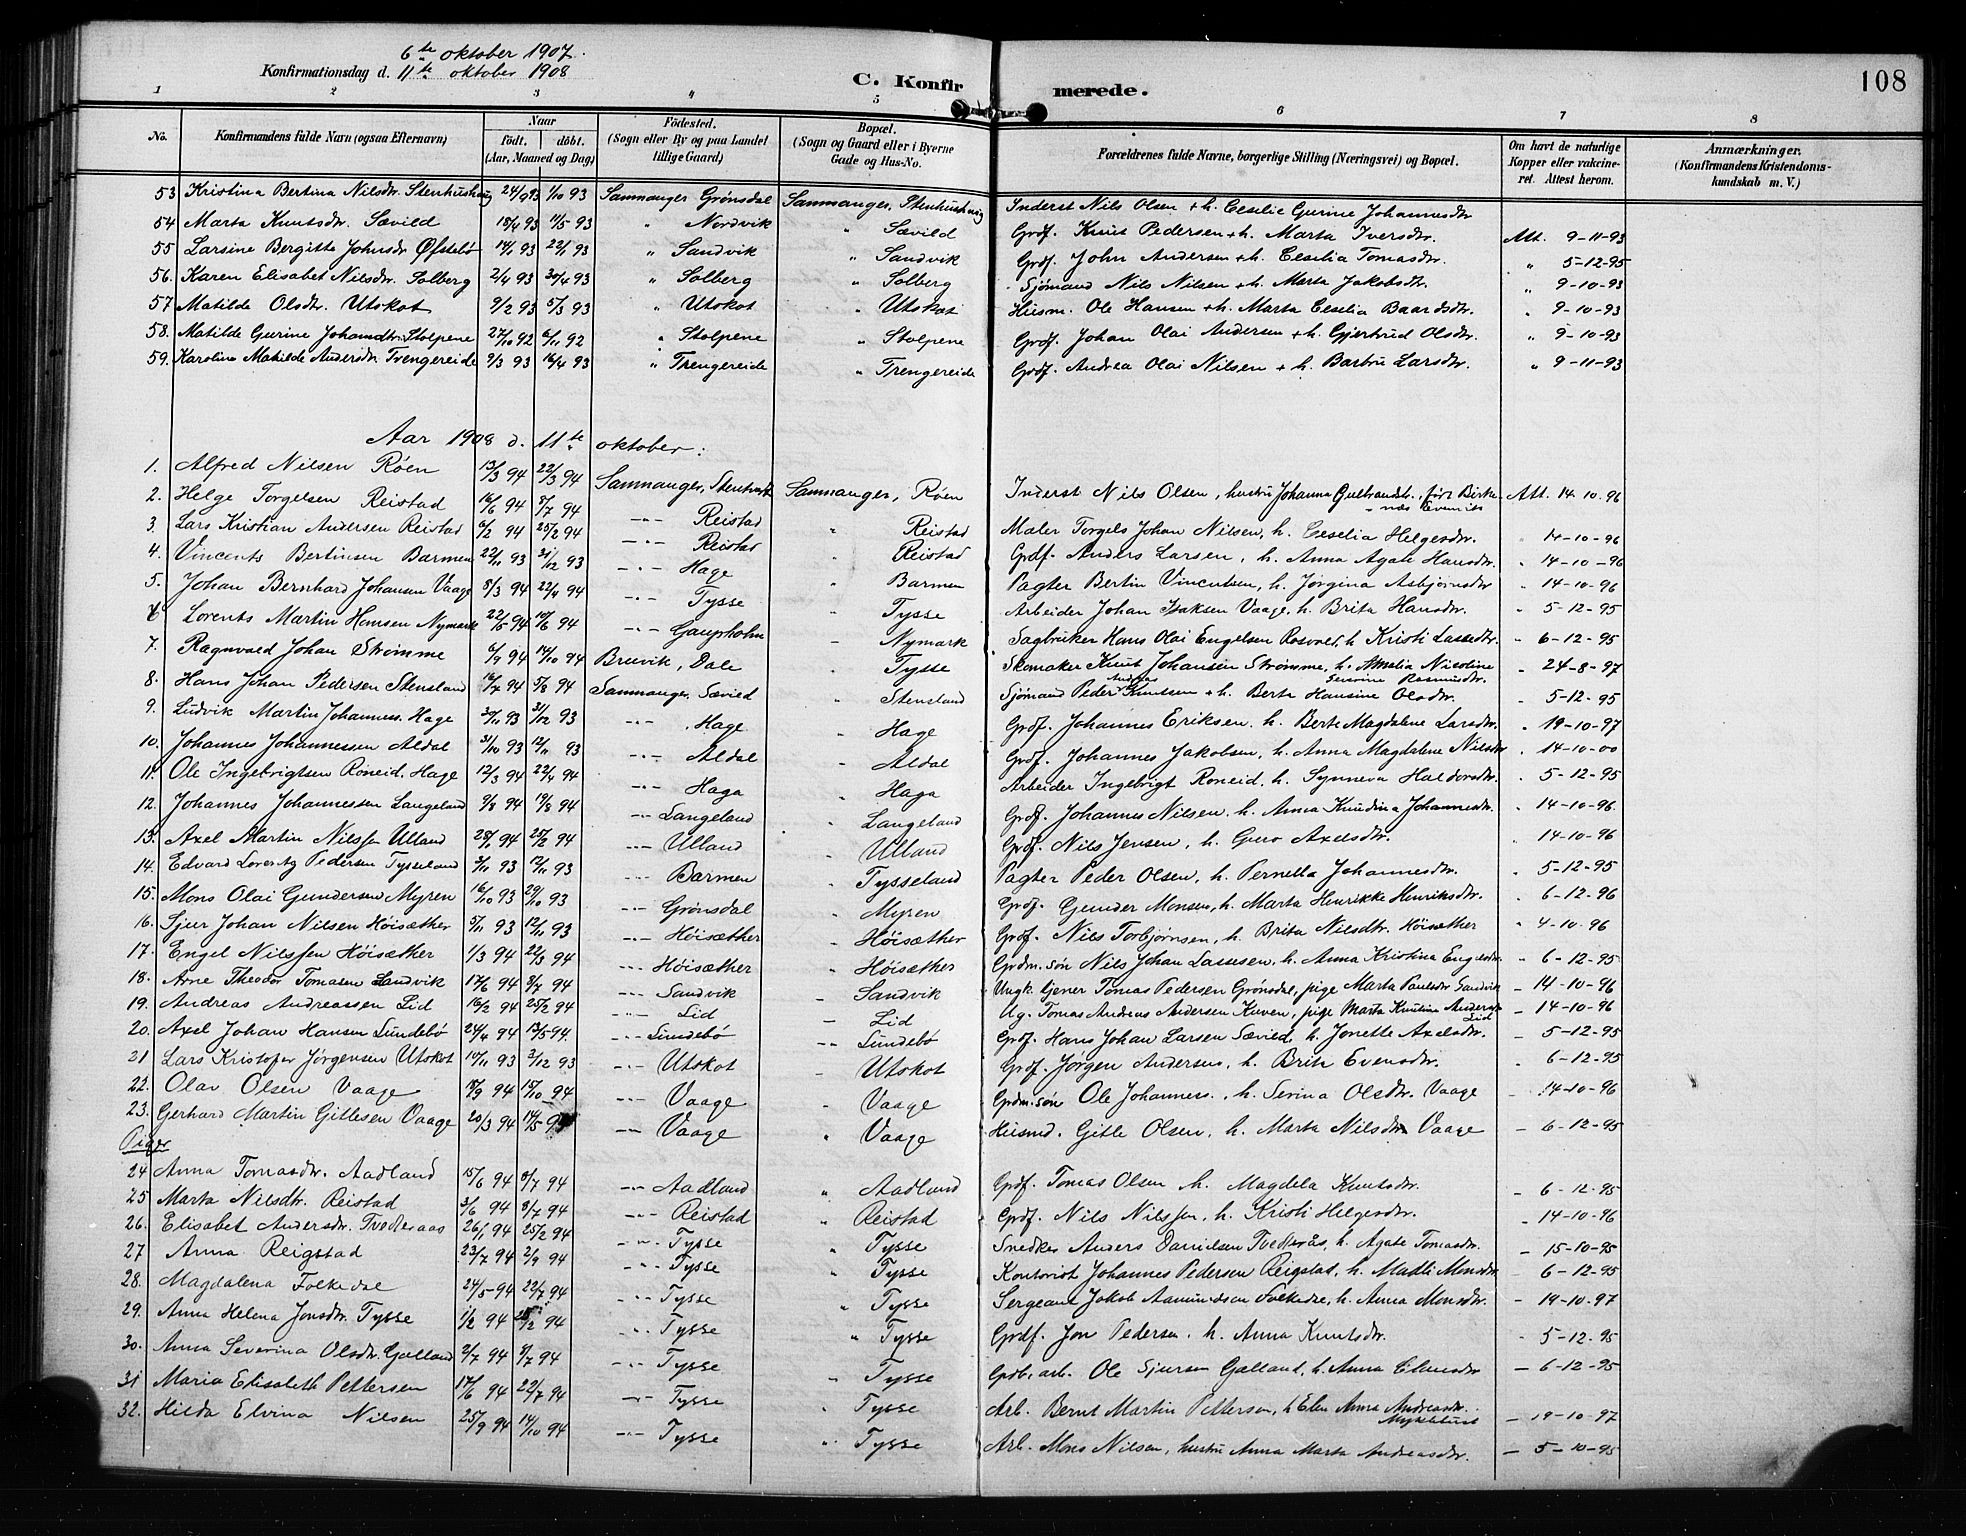 6te oktober 1907.
Konfirmationsdag d. 11te oktober 1908
C. Konfirmerede.
108
1 2 3 " 5 6 7 8
No. Konfirmandens fulde Navn (ogsaa Efternavn) Naar født. døbt. (Aar, Maaned og Dag) Fødested. (Sogn eller By og paa Landet tillige Gaard) Bopæl. (Sogn og Gaard eller i Byerne Gade og Hus-No.) Forældrenes fulde Navne, borgerlige Stilling (Næringsvei) og Bopæl. Om havt de naturlige Kopper eller vakcineret. Attest herom. Anmærkninger. (Konfirmandens Kristendomskundskab m. V.)
53 Kristina Bertina Nilsdtr. Stenhushaug 24/9 93 1/10 93 Samnanger Grønsdal Samnanger, Stenhushaug Inderst Nils Olsen + h. Cecelie Gurine Johannesdtr
54 Marta Knutsdtr. Sævild 18/4 93 11/5 93 " Nordvik " Sævild Grdf. Knut Pedersen + h. Marta Iversdtr. Att. 9-11-93
55 Larsine Bergitta Johnsdr Øfstebø 14/1 93 22/1 93 " Sandvik " Sandvik Grdf. John Andersen + h. Ceselia Tomasdtr. " 5-12-95
56. Karen Elisabet Nilsdr. Solberg 2/4 93 30/4 93 " Solberg " Solberg Sjømand Nils Nilsen + h. Marta Jakobsdtr. " 9-10-93
57 Matilde Olsdtr. Utskot 9/2 93 5/3 93 " Utskot " Utskot Husm. Ole Hansen + h. Marta Ceselia Baardsdtr. " 9-10-93
58. Matilde Gurine Johansdtr. Stolpene 27/10 92 6/11 92 " Stolpene " Stolpene Grdf. Johan Olai Andersen + h. Gjertrud Olsdtr. " 9-10-93
59. Karoline Matilde Andersdtr. Trengereide 9/3 93 16/4 93 " Trengereide " Trengereide Grdf. Andrea Olai Nilsen + h. Barbru Larsdtr. " 9-11-93
Aar 1908 d. 11te oktober:
1. Alfred Nilsen Røen 13/3 94 22/3 94 Samnanger, Samnanger, Røen Inderst Nils Olsen, hustru Johanna Gulbrandsdtr. Att. 14-10-96
2. Helge Torgelsen Reistad 16/6 94 8/7 94 -"- Reistad " Reistad Maler Torgels Johan Nilsen, h. Ceselia Helgesdtr. " 14-10-96
3. Lars Kristian Andersen Reistad 6/2 94 25/2 94 -"- Reistad " Reistad Grdf. Anders Larsen, h. Anna Agate Hansdtr. " 14-10-96
4. Vincents Bertinsen Barmen 22/11 93 31/12 93 -"- Hage " Barmen Pagter Bertin Vincentsen, h. Jørgina Asbjørnsdtr " 14-10-96
5. Johan Bernhard Johansen Vaage 8/3 94 22/4 94 -"- Tysse " Tysse Arbeider Johan Isaksen Vaage, h. Brita Hansdtr. " 5-12-95
6 Lorents Martin Hansen Nymark 22/5 94 10/6 94 -"- Gaupholm - Nymark Sagbruker Hans Olai Engelsen h. Kristi Lassedtr. " 6-12-95
7. Ragnvald Johan Strømme 6/9 94 14/10 94 Bruvik, Dale " Tysse Skomaker Knut Johansen Strømme, h. Amalia Nicoline Severine Rasmusdtr. " 24-8-97
8. Hans Johan Pedersen Stensland 16/7 94 5/8 94 Samnanger, Sævild " Stensland Sjømand Peder Andreas Knutsen + h. Berta Hansine Olsdtr. " 5-12-95
9. Ludvik Martin Johanness. Hage 30/11 93 31/12 93 -"- Hage - Hage Grdf. Johannes Eriksen, h. Berte Magdalene Larsdtr. " 19-10-97
10. Johannes Johannessen Aldal 31/10 93 12/11 93 -"- Aldal - Aldal Grdf. Johannes Jakobsen, h. Anna Magdalene Nilsdtr " 14-10-00
11. Ole Ingebrigtsen Roneid. Hage 12/3 94 22/4 94 -"- Haga " Haga Arbeider Ingebrigt Roneid, h. Synneva Haldorsdtr. " 5-12-95
12. Johannes Johannessen Langeland 9/8 94 19/8 94 -"- Langeland " Langeland Grdf. Johannes Nilsen, h. Anna Knudina Johannesdtr. " 14-10-96
13. Axel Martin Nilssen Ulland 28/1 94 25/2 94 -"- Ulland " Ulland Grdf. Nils Jensen, h. Guro Axelsdtr. " 14-10-96
14. Edvard Lorentz Pedersen Tysseland 3/11 93 12/11 93 -"- Barmen " Tysseland Pagter Peder Olsen, h. Pernella Johannesdtr. " 5-12-95
15. Mons Olai Gundersen Myren 16/10 93 29/10 93 -"- Grønsdal " Myren Grdf. Gunder Monsen, h. Marta Henrikke Henriksdtr. " 6-12-96
16. Sjur Johan Nilsen Høisæther 5/11 93 12/11 93 -"- Høisæther " Høisæther Grdf. Nils Torbjørnsen, h. Brita Nilsdtr. Høisæther " 4-10-96
17. Engel Nilssen Høisæther 1/3 94 22/3 94 -"- Høisæther " Høisæther Grdm. søn Nils Johan Lassesen, h. Anna Kristina Engelsdtr. " 6-12-95
18. Arne Theodor Tomasen Sandvik 17/6 94 8/7 94 -"- Sandvik - Sandvik Ungk. tjener Tomas Pedersen Grønsdal, pige Marta Paulsdtr Sandvik - 14-10-96
19. Andreas Andreassen Lid 16/2 94 25/2 94 -"- Lid - Lid Ug. Tomas Andreas Andersen Kuven, pige Marta Knutine Andersdtr Lid - 14-10-96
20. Axel Johan Hansen Lundebø 24/4 94 13/5 94. -"- Lundebø -- Lundebø Grdf. Hans Johan Larsen Sævild, h. Jonette Axelsdtr. - 5-12-95
21 Lars Kristofer Jørgensen Utskot 14/11 93 3/12 93 -"- Utskot - Utskot Grdf. Jørgen Andersen, h. Brita Evensdtr. " 6-12-95
22. Olav Olsen Vaage 18/9 94 15/10 94 -"- Vaage - Vaage Grdm. søn Ole Johanness., h. Serina Olsdtr. Vaage - 14-10-96
23. Gerhard Martin Gitlesen Vaage 20/3 94 14/5 -"- Vaage " Vaage Husmd. Gitle Olsen, h. Marta Nilsdtr Vaage - 6-12-95
Piger
24 Anna Tomasdtr. Aadland 15/6 94 8/7 94 -"- Aadland " Aadland Grdf. Tomas Olsen h. Magdela Knutsdtr. - 6-12-95
25 Marta Nilsdtr. Reistad 3/6 94 8/7 94 -"- Reistad " Reistad Grdf. Nils Nilssen, h. Kristi Helgesdtr. " 14-10-96
26. Elisabet Andersdr. Tvedteraas 26/1 94 25/2 94 -"- Tysse " Tysse Snedker Anders Danielsen Tvedterås, h. Agate Tomasdtr. - 15-10-95
27 Anna Reigstad 23/7 94 2/9 94 -"- Tysse " Tysse Kontorist Johannes Pedersen Reigstad, h. Madli Monsdtr - 6-12-95
28. Magdalena Folkedal 24/5-94 22/7 94 -"- Tysse " Tysse Sergeant Jakob Aamundsen h. Anna Monsdtr. - 19-10-97
29. Anna Helena Jonsdtr. Tysse 1/2 94 25/2 94 -"- Tysse " Tysse Grdf. Jon Pedersen, h. Anna Knutsdtr. " 5-12-95
30. Anna Severina Olsdtr. Gålland 2/7 94 8/7 94 -"- Tysse " Tysse Ole Sjursen Gålland, h. Anna - 6-12-95
31 Maria Elisabeth Pettersen 17/6 94 22/7 94 -"- Tysse " Tysse Arb. Bernt Martin Pettersen, h Elen Anna Andreasdtr. Myklebust - 19-10-97
32. Hilda Elvina Nilsen 25/9 94 14/10 94 -"- Tysse " Tysse Arb. Mons Nilsen, hustru Anna Marta Andreasdtr. - 5-10-95